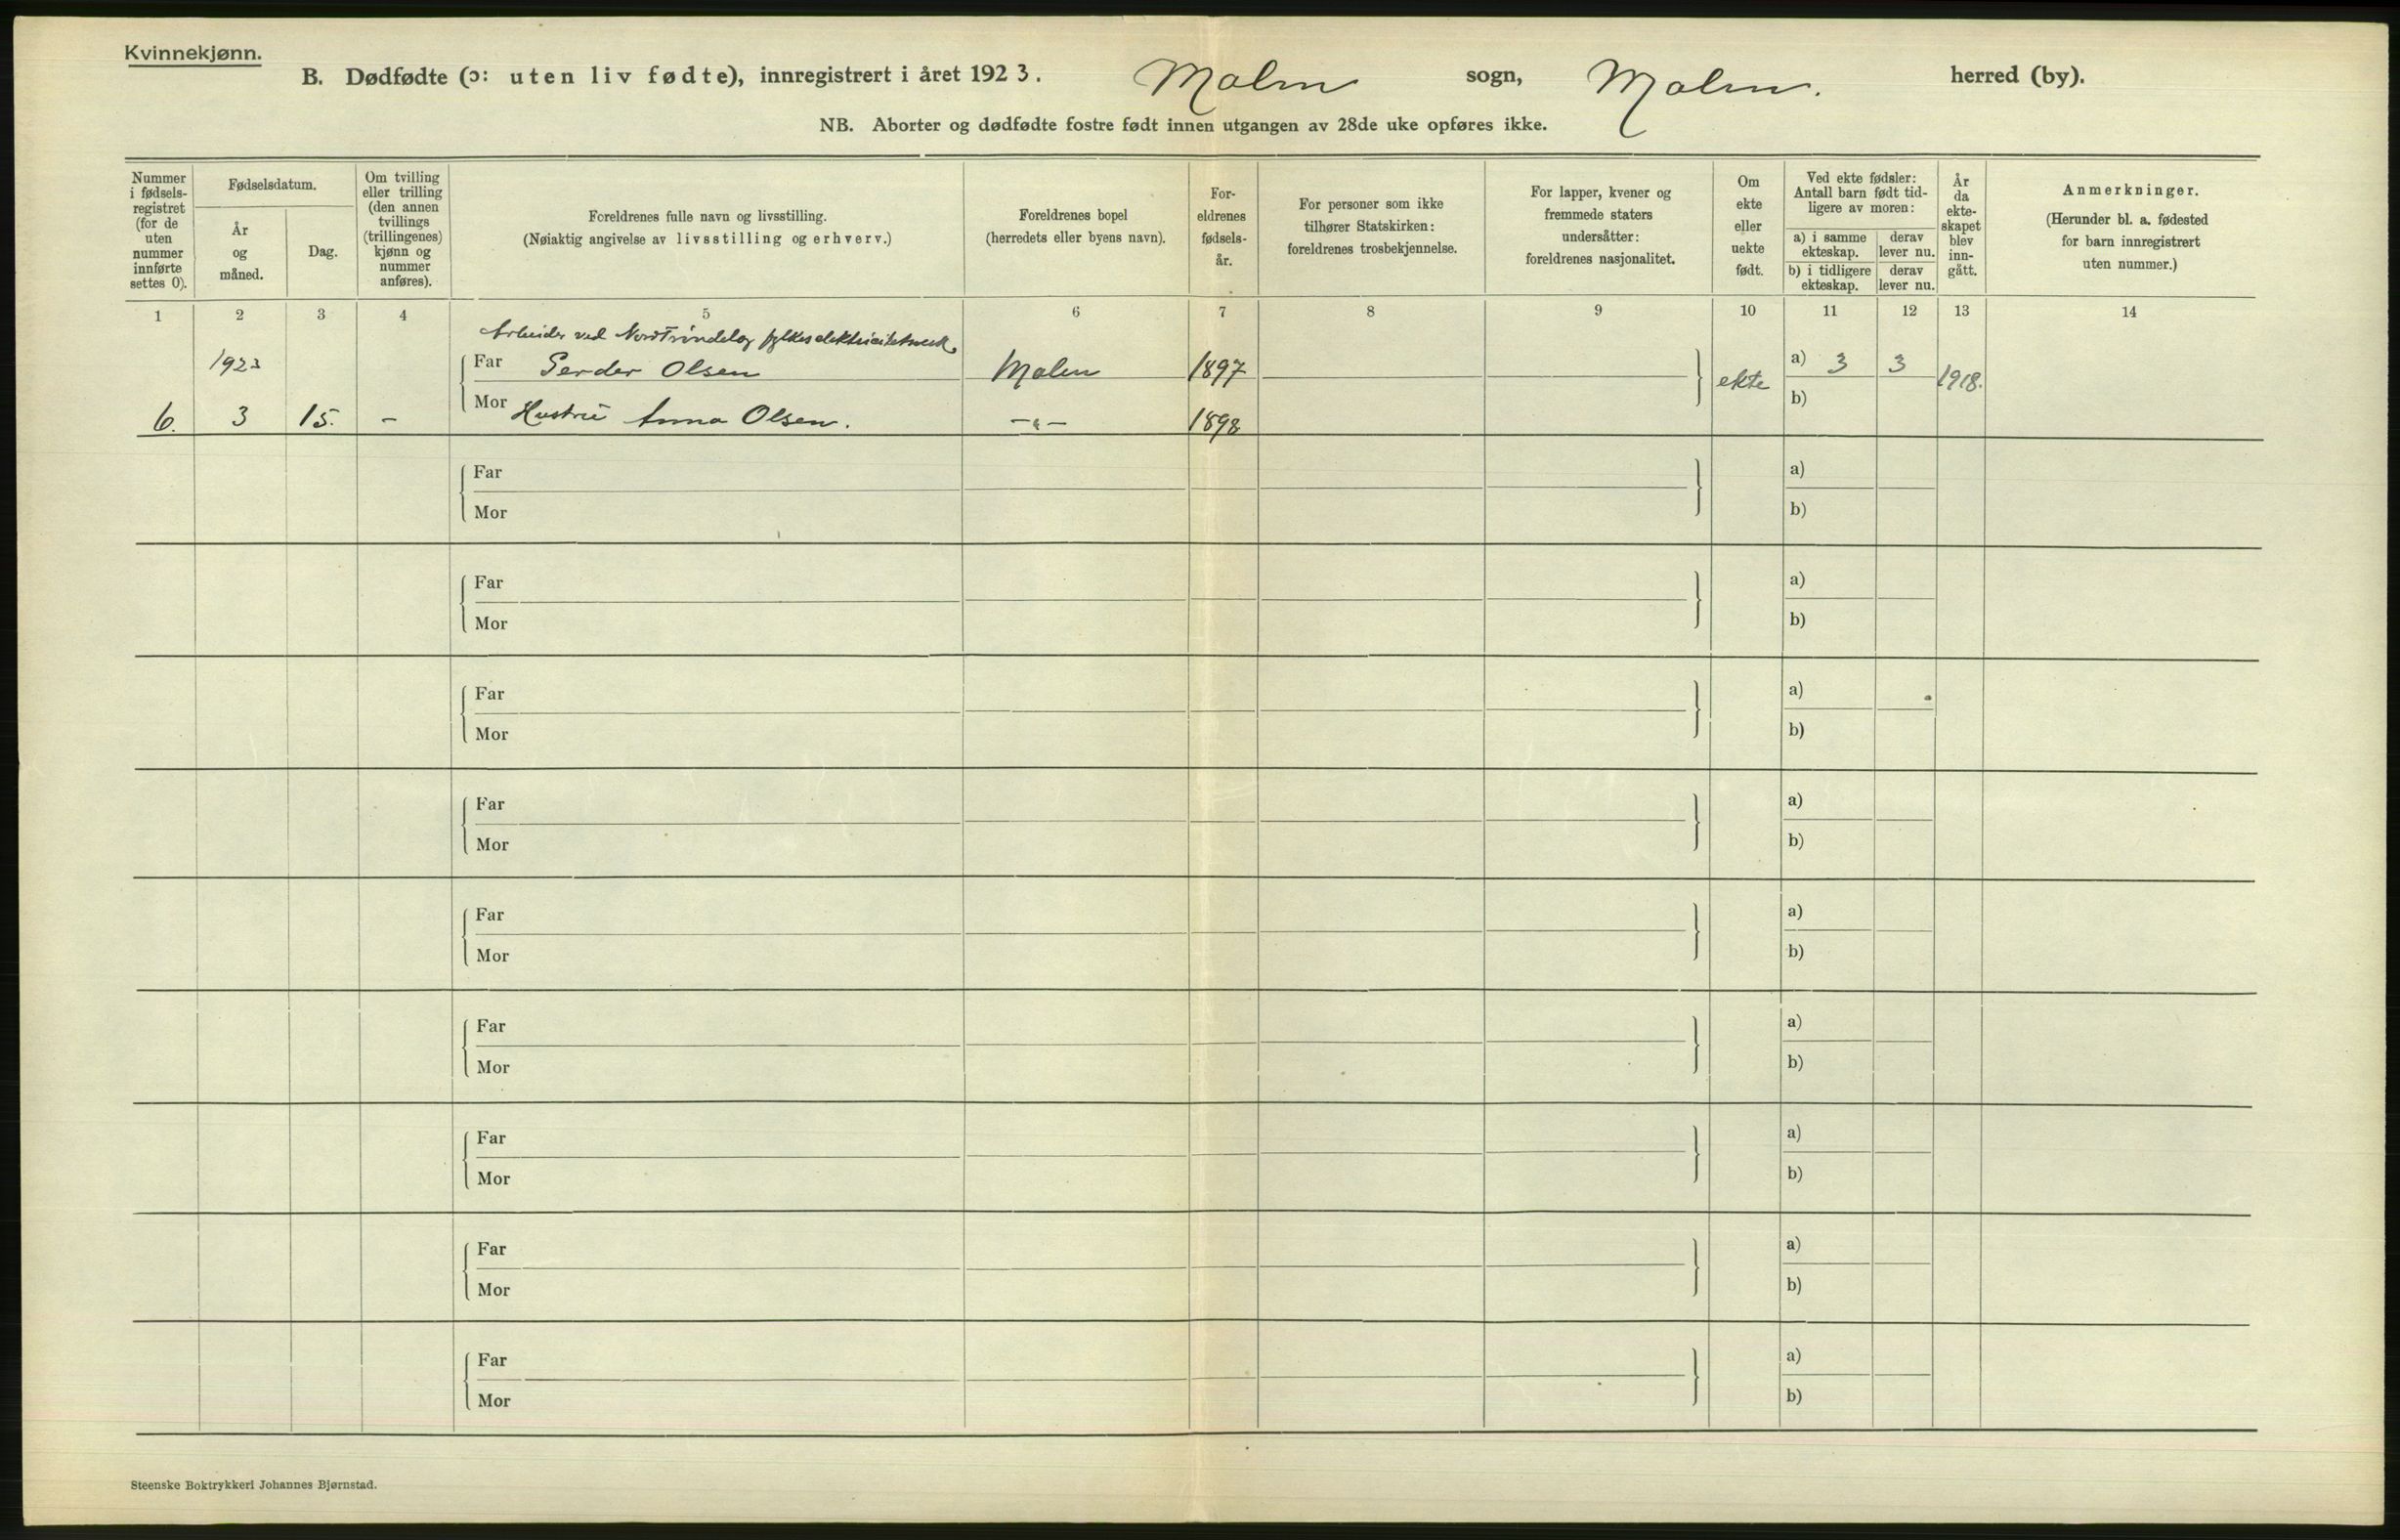 Kvinnekjønn.
B. Dødfødte (ɔ: uten liv fødte), innregistrert i året 1923. Malm sogn, Malm. herred (by).
NB. Aborter og dødfødte fostre født innen utgangen av 28de uke opføres ikke.
Nummer i fødsels-registret (for de uten nummer innførte settes 0).
Fødselsdatum.
År og måned.
Dag.
Om tvilling eller trilling (den annen tvillings (trillingenes) kjønn og nummer anføres).
Foreldrenes fulle navn og livsstilling.
(Nøiaktig angivelse av livsstilling og erhverv.)
Foreldrenes bopel
(herredets eller byens navn).
For-eldrenes fødsels-år.
For personer som ikke tilhører Statskirken: foreldrenes trosbekjennelse.
For lapper, kvener og fremmede staters undersåtter: foreldrenes nasjonalitet.
Om ekte eller uekte født.
Ved ekte fødsler: Antall barn født tid-ligere av moren:
a) i samme ekteskap.
derav lever nu.
b) i tidligere ekteskap.
derav lever nu.
År da ekte-skapet blev inn-gått.
Anmerkninger.
(Herunder bl. a. fødested for barn innregistrert uten nummer.)
1 2 3 4 5 6 7 8 9 10 11 12 13 14
Arbeider ved NordTrøndelag fylkes elektricitetsverk
1923 Far Olsen Malm 1897 ekte a) 3 3 1918.
6. 3 15. - Mor Hustru Anna Olsen. -"- 1898 b)
Far a)
Mor b)
Far a)
Mor b)
Far a)
Mor b)
Far a)
Mor b)
Far a)
Mor b)
Far a)
Mor b)
Far a)
Mor b)
Far a)
Mor b)
Far a)
Mor b)
Steenske Boktrykkeri Johannes Bjørnstad.